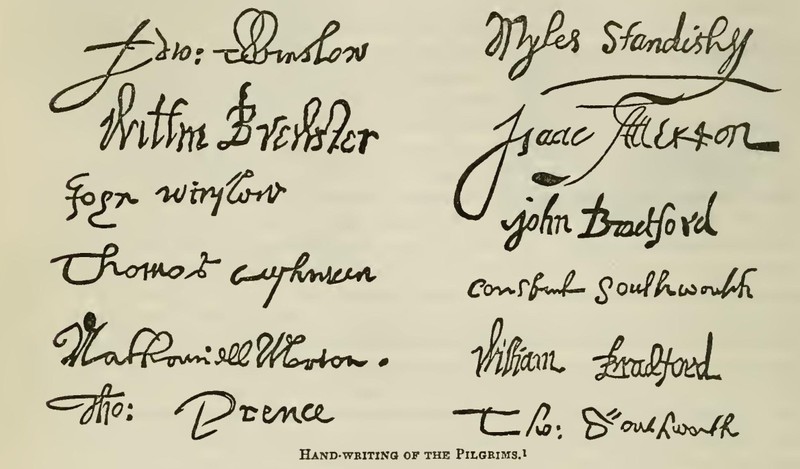 Edw: Winslow
Willm Brewster
John winslow
Thomas Cushman
Nathaniell Morton.
Tho: Prence
Myles Standish
Isaac Allerton
john Bradford
Constant Southworth
William Bradford
Tho: Southworth
HAND-WRITING OF THE PILGRIMS.1